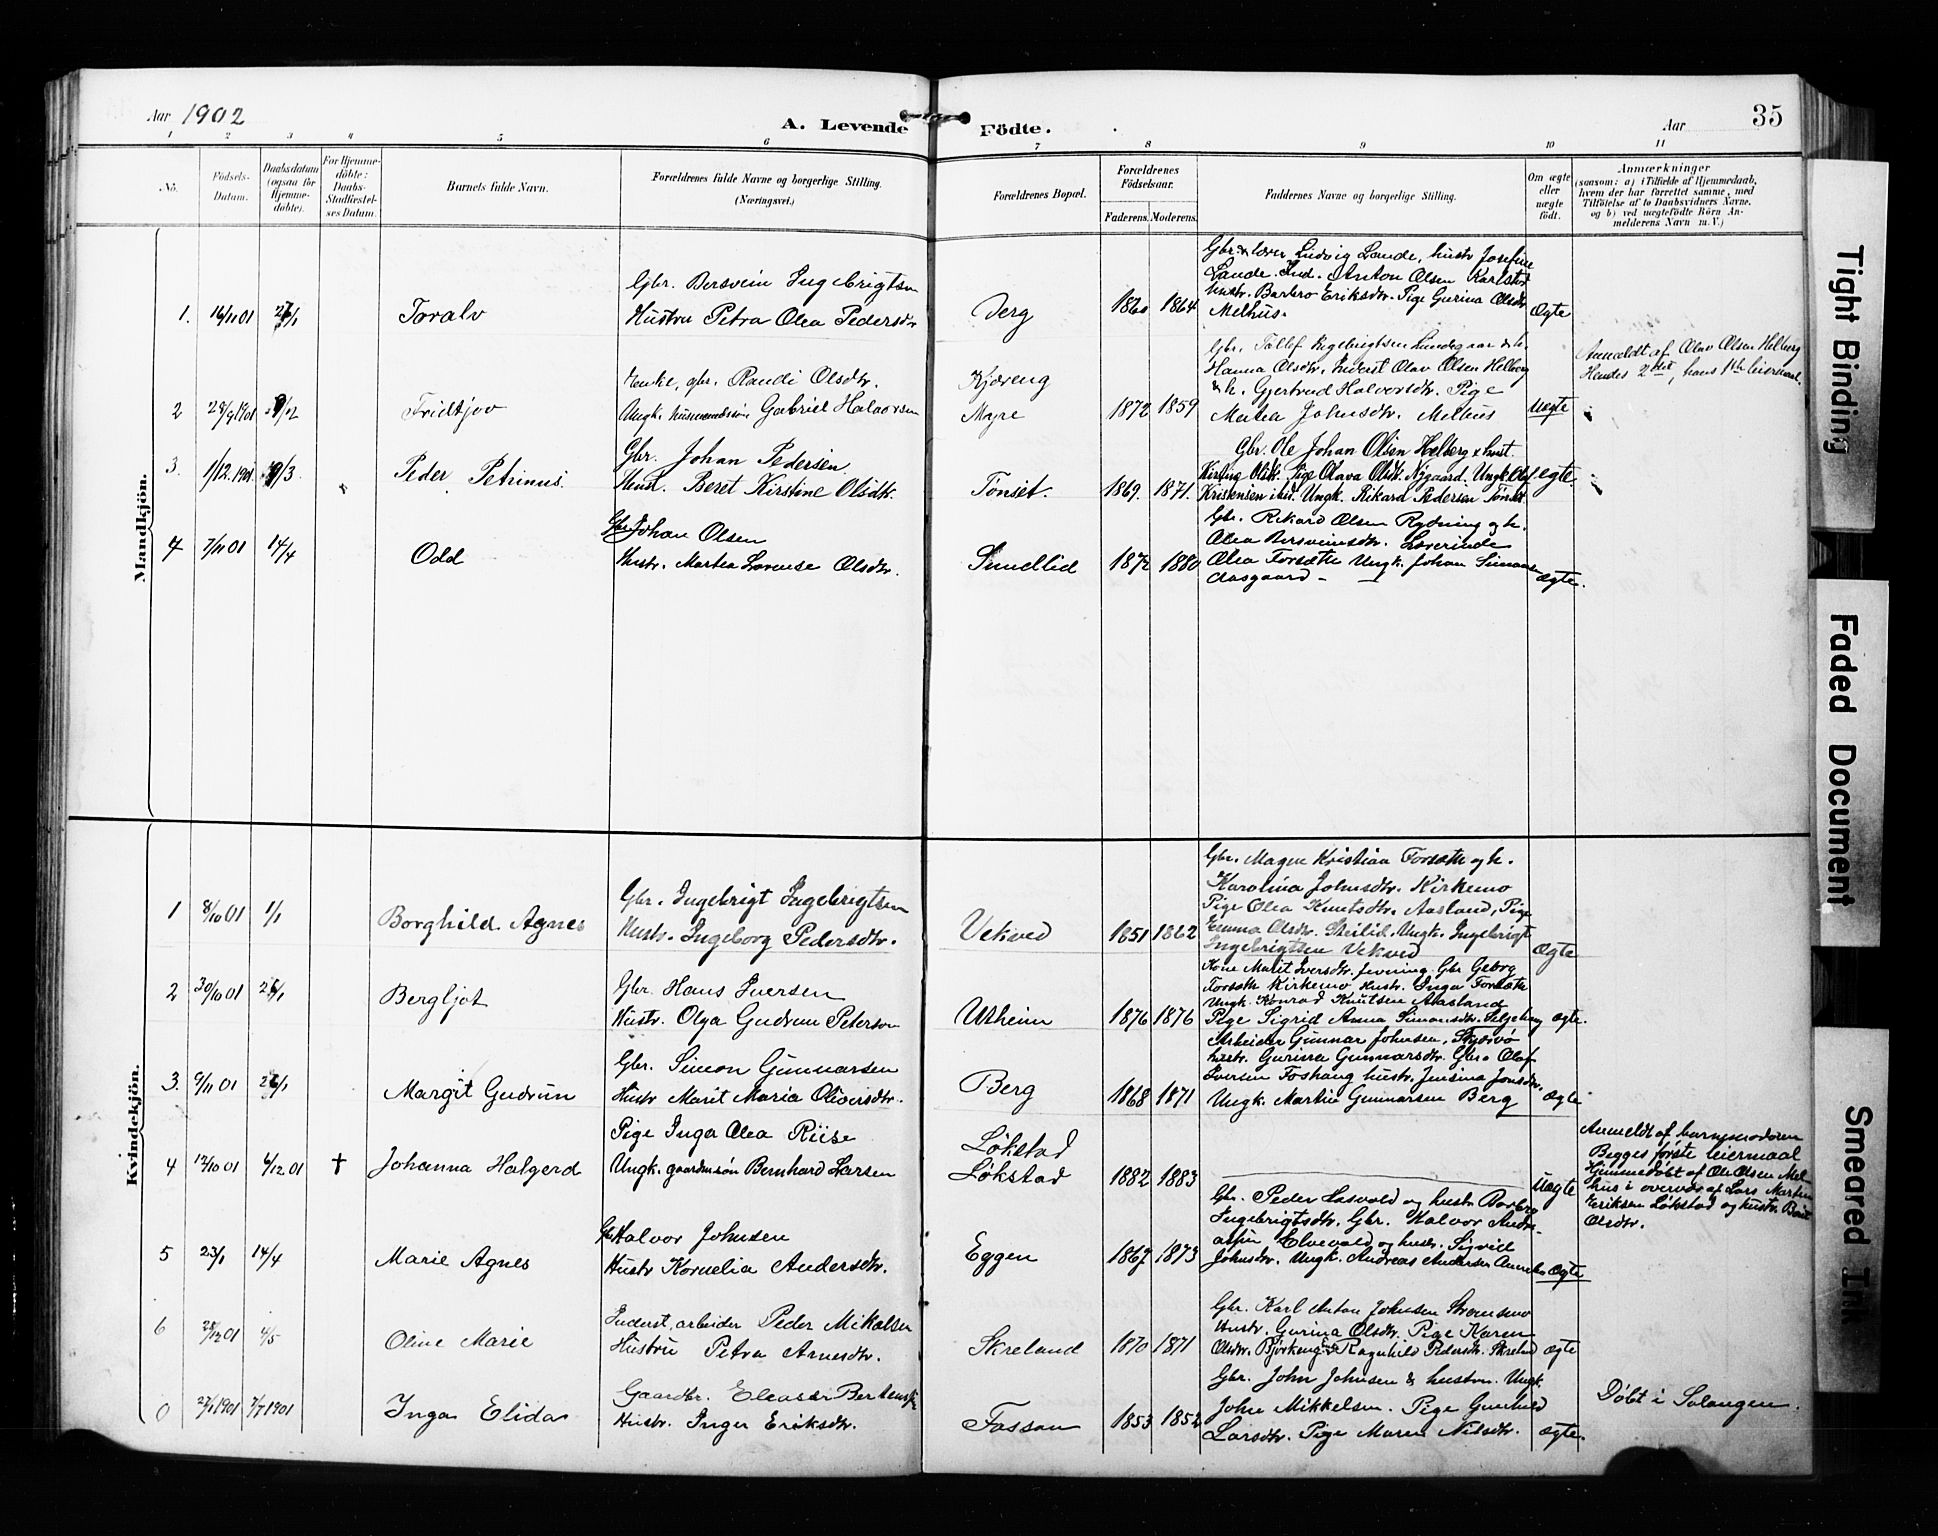 Aar 1902
A. Levende Födte.
Aar
35
1 2 3 4 5 6 7 8 9 10 11
No.
Födsels-Datum.
Daabsdatum (ogsaa för Hjemmedöbte).
For Hjemmedöbte: Daabs-Stadfæstelses Datum.
Barnets fulde Navn.
Forældrenes fulde Navne og borgerlige Stilling. (Næringsvei.)
Forældrenes Bopæl.
Forældrenes Födselsaar.
Faderens. Moderens.
Faddernes Navne og borgerlige Stilling.
Om ægte eller uægte födt.
Anmærkninger
(saasom: a) i Tilfælde af Hjemmedaab, hvem der har forrettet samme, med Tilföielse af to Daabsvidners Navne, og b) ved uægtefödte Börn Anmelderens Navn m. V.)
Mandkjön.
Gbr. Bersvein Ingebrigtsen
1. 16/11 01 Toralv Hustru Petra Olea Pedersdtr Berg 1860 1864 Ægte
Gbr. & lærer Ludvig Lande, hustr Josefine
Lande. Ind. Anton Olsen Karlstad
Hustr. Barbro Eriksdtr. Pige Gurina Olsdtr
Melhus.
Enke, gbr. Randi Olsdtr. Kjæreng
2 Fridtjov Ungk. Gabriel Halvorsen Myre 1872 1859 Uægte
Hanna Olsdtr. Inderst Olav Olsen Helberg
& h. Gjertrud Halvorsdtr. Pige
Matea Johnsdtr. Melhus
Anmeldt af Olav Olsen Helberg
Hendes 2det, hans 1ste leiermaal.
Gbr. Johan Pedersen
3. 1/12 1901 Peder Petrinus. Hust. Beret Kirstine Olsdtr. Tönset. 1869. 1871. ægte.
Gbr. Ole Johan Olsen Helberg & hust.
Kirstine Olsdtr. Pige Olava Olsdtr. Nygaard. Ungk. Olaf
Kristensen ibid. Ungk. Rikard Pedersen Tönset
Gbr Johan Olsen
4 7/11 01 14/4 Odd Hustr. Martea Lovense Olsdtr. Smedlid 1872 1880 ægte.
Gbr. Rikard Olsen Rydning og h.
Olea Bersveinsdtr. Lærerinde
Olea Forsæth Ungk. Johan Simonsen
Aasgaard
Kvindekjön.
Gbr. Ingebrigt Ingebrigtsen
1 8/10 01 1/1 Borghild Agnes Hustr. Ingeborg Pedersdtr. Vekved 1851 1862 Ægte
Gbr. Magnu Kristian Forsæth og h.
Karolina Johnsdtr. Kirkemo
Pige Olea Knutsdtr. Aasland, Pige
Emma Olsdtr. Ungk. Ingebrigt
Ingebrigtsen Vekved
Gbr. Hans Iversen
2 30/10 01 26/1 Bergljot Hustr. Olga Gudrun Peterson Utheim 1876 1876 ægte.
Kone Marit Iversdtr. Jevning. Gbr Georg
Forsæth Kirkemo Hustr. Inga Forsæth
Ungk. Konrad Knutsen Aasland
Pige Sigrid Anna Simonsdtr. Seljehaug
Gbr. Simon Gunnarsen
3. 9/11 01 26/1 Margit Gudrun Hustr Marit Maria Oliversdtr. Berg 1868 1871 ægte
Arbeider Gunnar Johnsen,
hustr. Gurina Gunnarsdtr. Gbr. Olaf
Iversen Foshaug hustr. Jensina Jonsdtr.
Ungk. Martin Gunnarsen Berg
Pige Inga Olea Riise Løkstad
4 12/10 01 6/12 01 † Johanna Halgerd Ungk. gaardmsøn Bernhard Larsen Løkstad 1882 1883 Uægte
Anmeldt af barnemoderen
Begges første leiermaal
Hjemmedøbt af Ole Olsen Melhus i overvær af Lars Martin
Eriksen Løkstad og hustr. Berit
Olsdtr.
Gbr Halvor Johnsen
5 23/1 14/4 Marie Agnes Hustr Kornelia Andersdtr. Eggen 1867 1873 ægte
Gbr. Peder Hasvold og hustr Barbro
Ingebrigtsdtr. Gbr. Halvor Andreassen Elvevold og hustr. Sigrid
Johnsdtr. Ungk. Andreas Andersen
Inderst, arbeider Peder Mikalsen
6 28/12 01 4/5 Oline Marie Hustru Petra Arnesdtr. Skreland 1870 1871 ægte
Gbr. Karl Anton Johnsen Strømsmo
Hustr. Gurina Olsdtr. Pige Karen
Olsdtr. Bjørkeng Ragnhild Pedersdtr. Skreland
Gaardbr. Eleasar Berntsen
0 1901 7/7 1901 Inga Elida Hustr. Inger Eriksdtr. Fossan 1853 1852 ægte.
Gbr. John Johnsen & hustru. Ungk
John Mikkelsen. Pige Gunhild
Larsdtr. Pige Maren Nilsdtr.
Døbt i Salangen.
Tight Binding
Faded Document
Smeared Ink